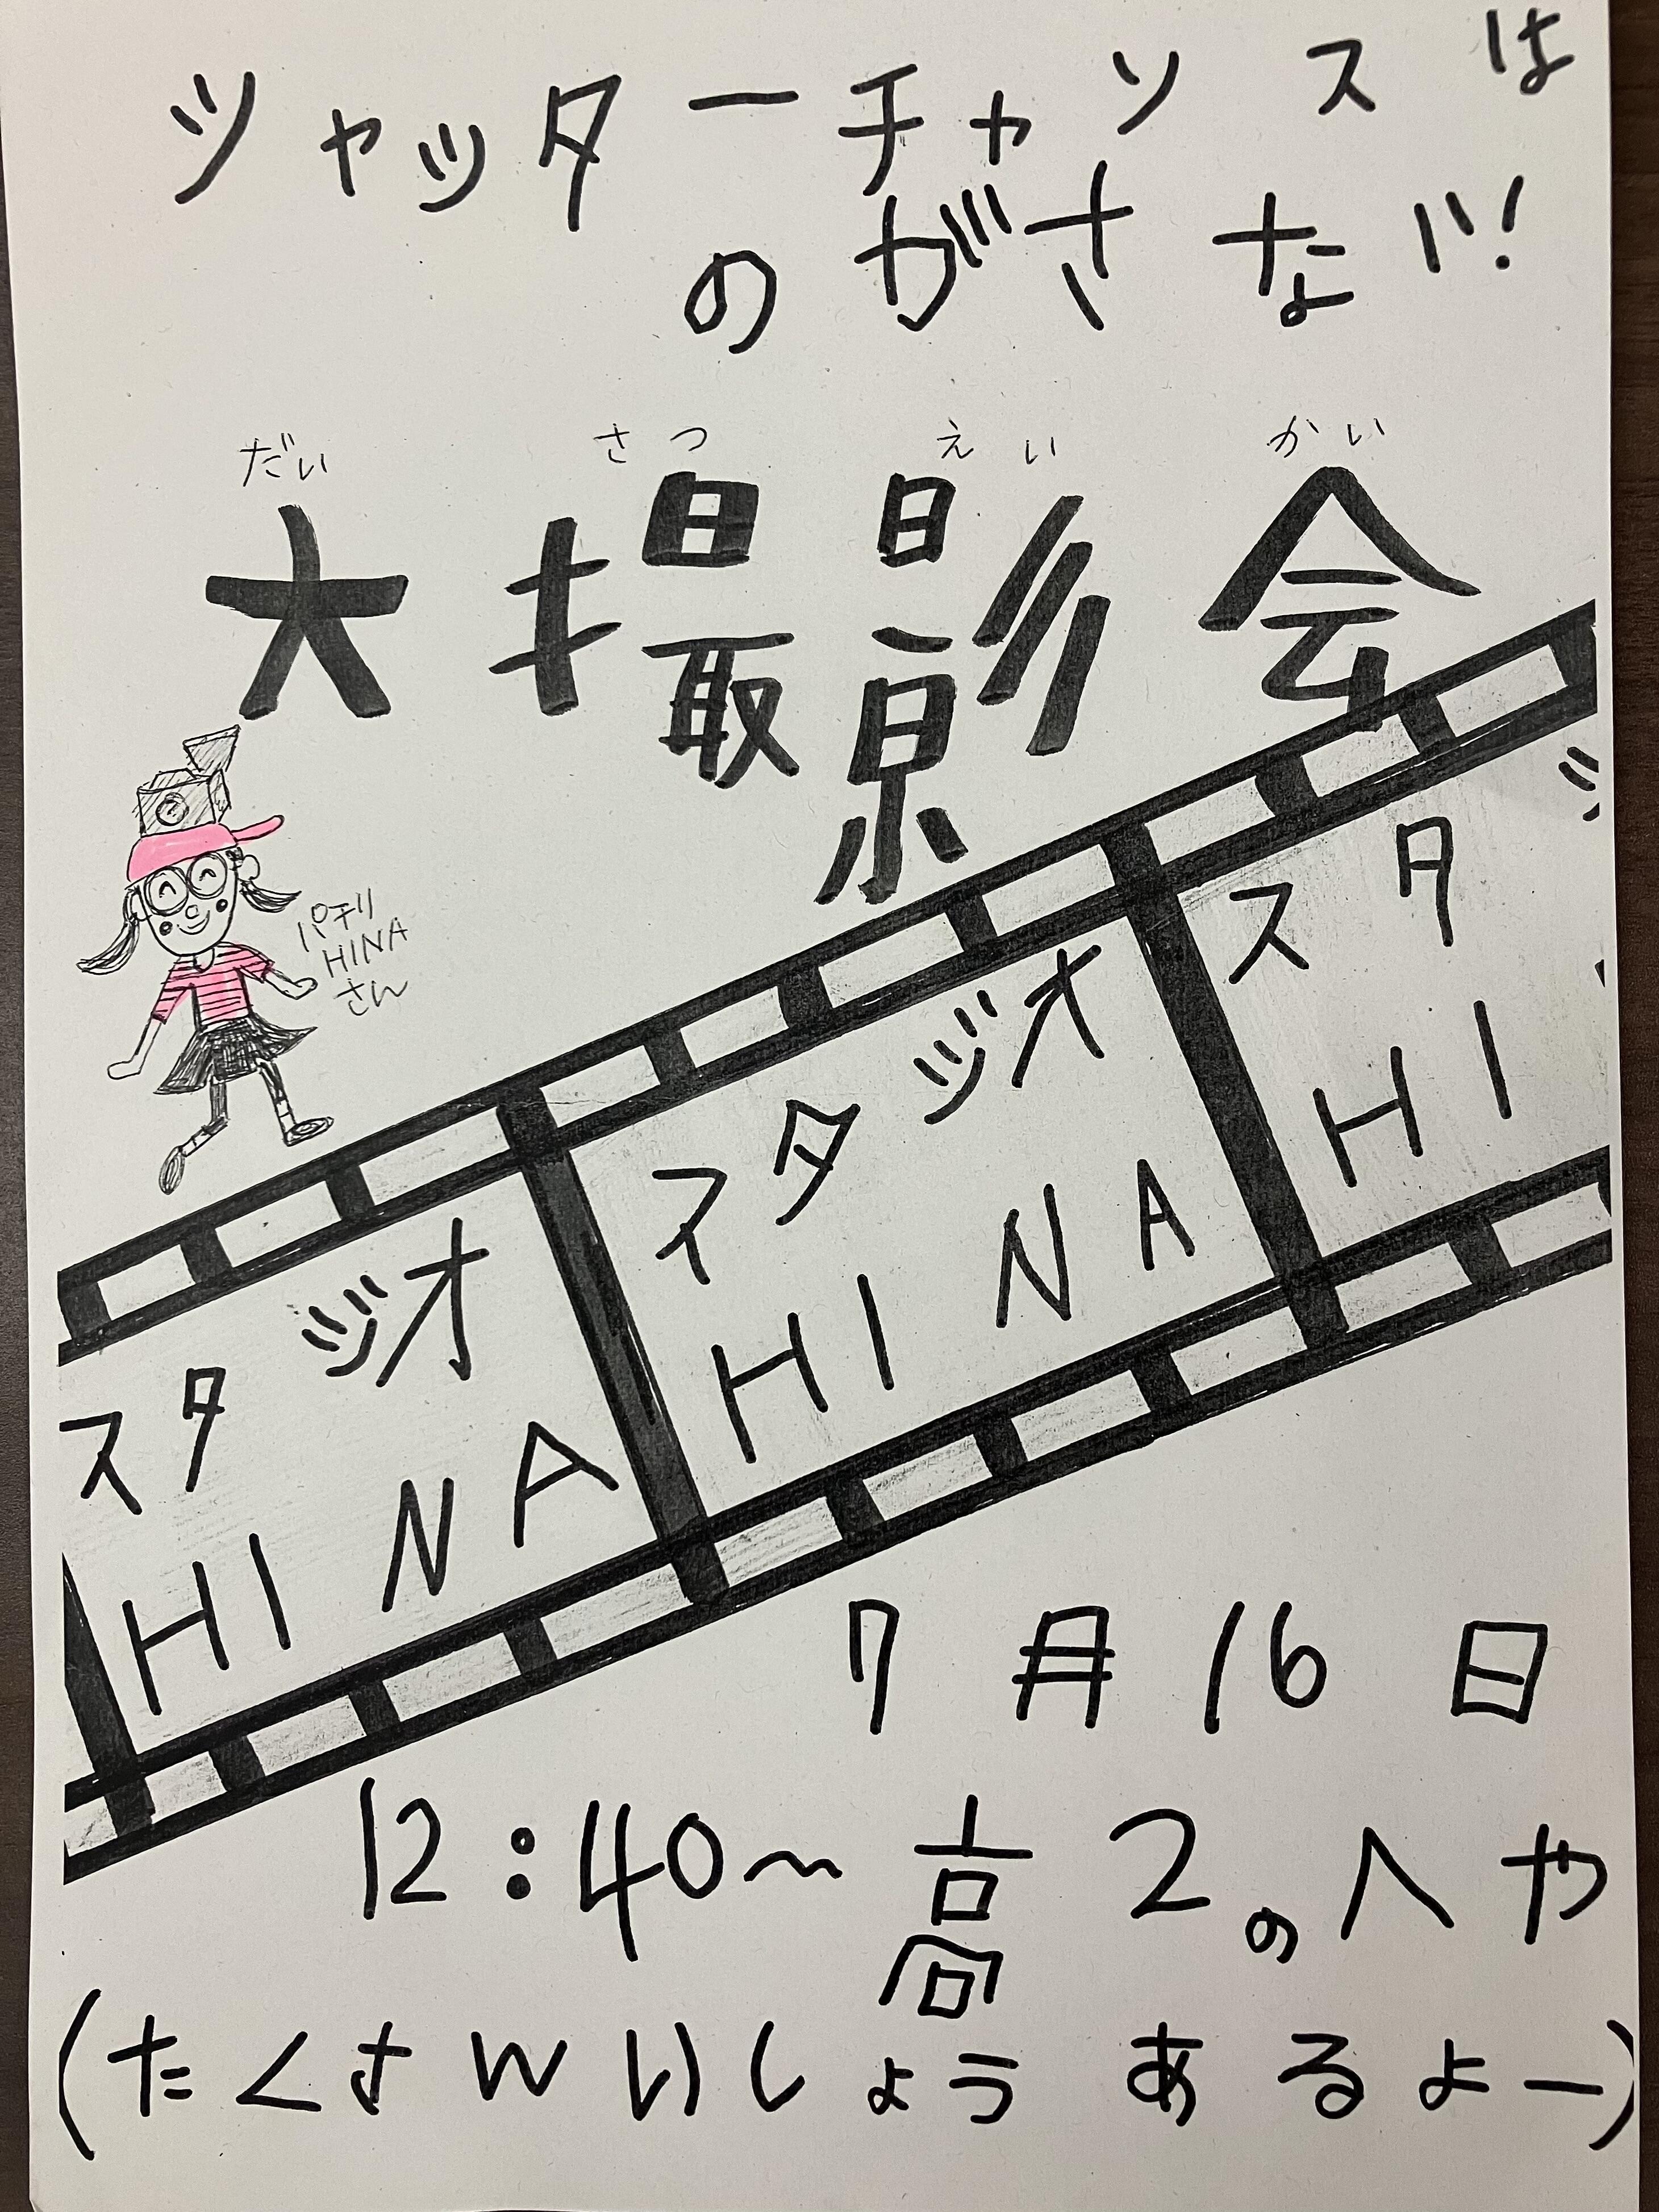 シャッターチャンスは
のがさない!
だい さつ えい かい
大撮影会
パチリ
HINA
さん
スタジオ
HINA
スタジオ
HINA
スタジ
HI
7月16日
12:40〜高2のへや
(たくさんいしょうあるよー)